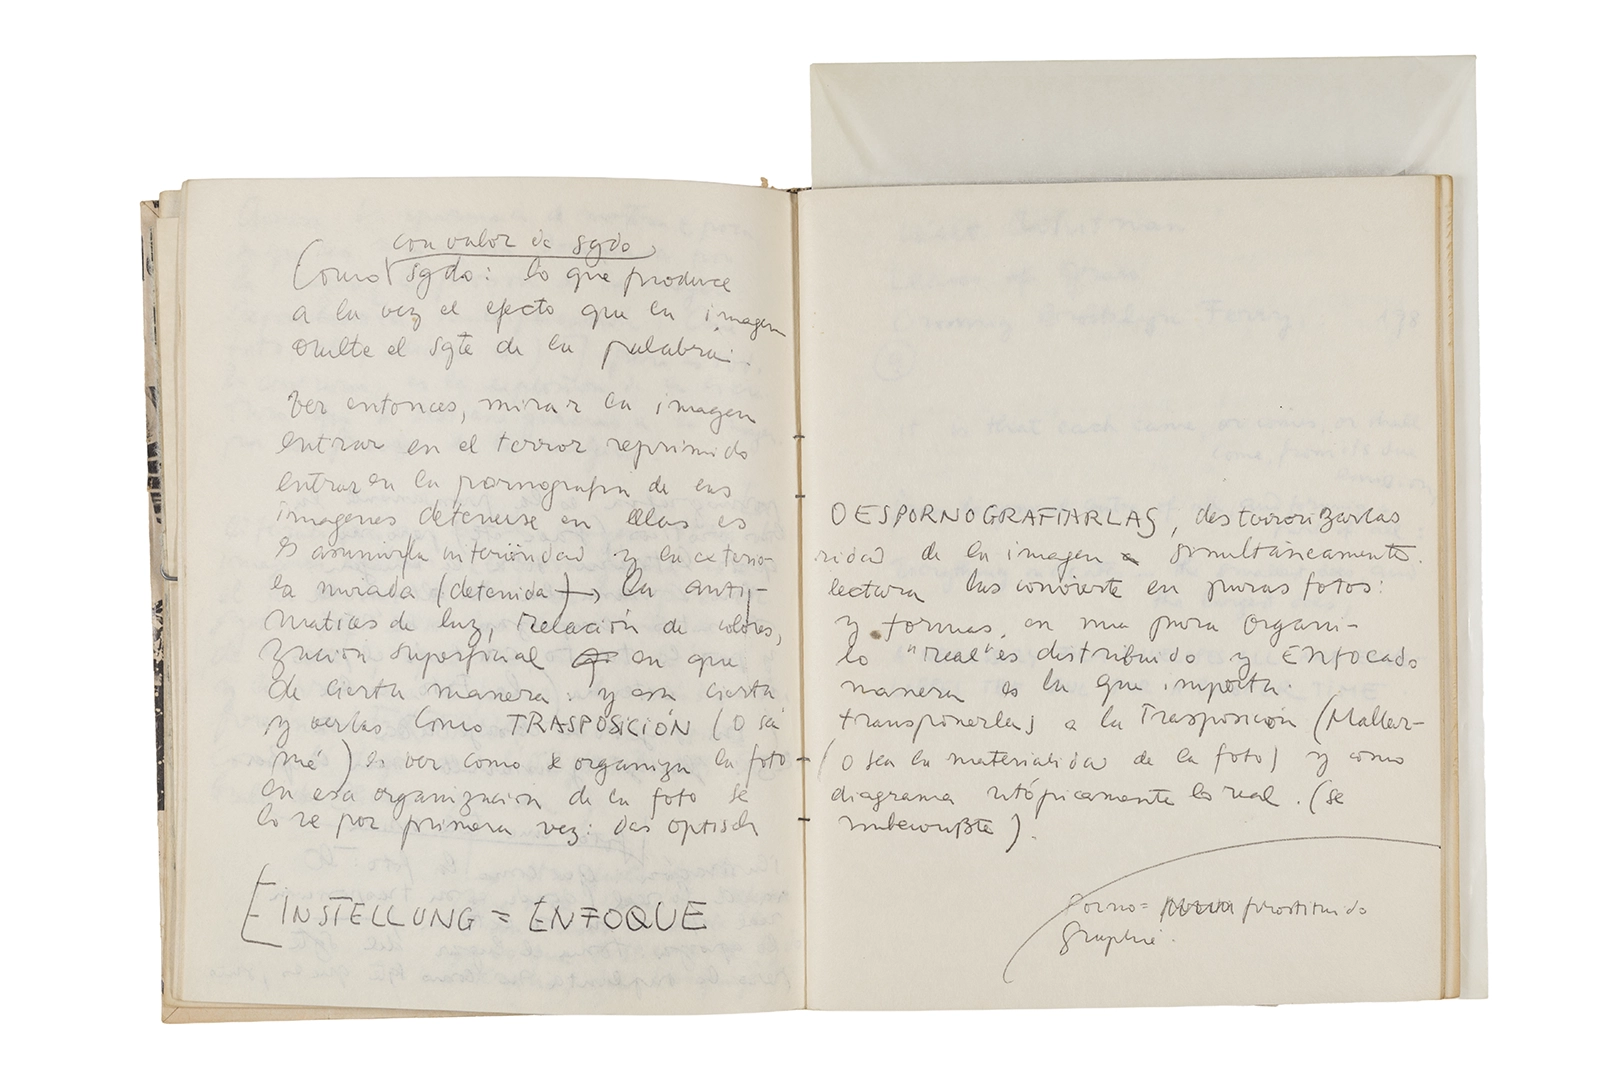 con valor de sgdo
Como sgdo: lo que produce
a la vez el efecto que la imagen
oculte el sgte de la palabra.
Ver entonces, mirar la imagen
entrar en el terror reprimido
entrar en la pornografia de las
imagenes detenerse en ellas es DESPORNOGRAFIARLAS, desterrorizarlas
es asumir la interioridad y la exterio- ridad de la imagen simultáneamente.
la mirada (detenida) → la anti- lectura las convierte en puras fotos:
matices de luz, relación de colores, y formas, en una pura organi-
zación superficial en que lo "real" es distribuido y ENFOCADO
de cierta manera: y esa cierta manera es la que importa.
y verlas como TRASPOSICIÓN (o sea transponerlas a la Trasposición (Mallar-
mé) es ver como se organiza la foto (o sea la materialidad de la foto) y como
en esa organización de la foto se diagrama utópicamente lo real. (se
lo ve por primera vez: das optisch unbewußte).
[EINSTELLUNG = ENFOQUE
Porno = prostituido
graphie.